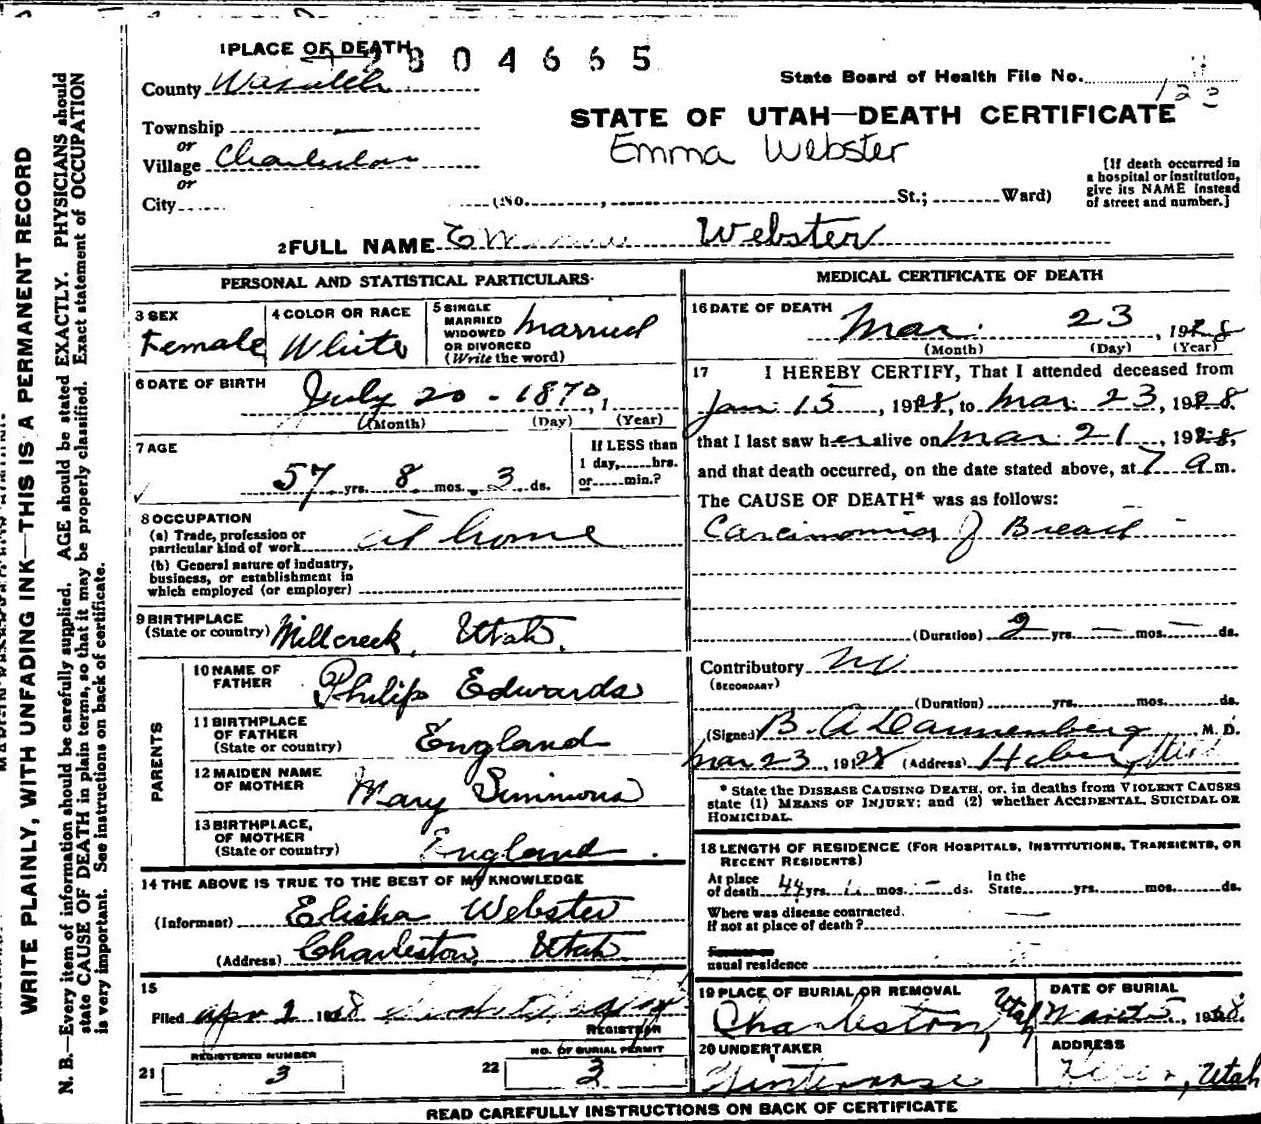 1 PLACE OF DEATH
2804665
County Wasatch
State Board of Health File No.
Township
or
Village Charleston
or
City
STATE OF UTAH—DEATH CERTIFICATE
Emma Webster
[If death occurred in
a hospital or institution,
give its NAME instead
of street and number.]
(No. , St.; Ward)
2 FULL NAME Emma Webster
PERSONAL AND STATISTICAL PARTICULARS
3 SEX
Female
4 COLOR OR RACE
White
5 SINGLE
MARRIED
WIDOWED
OR DIVORCED
(Write the word)
Married
6 DATE OF BIRTH
July 20 - 1870, 1
(Month) (Day) (Year)
7 AGE
57 yrs. 8 mos. 3 ds.
If LESS than
1 day, hrs.
or min.?
8 OCCUPATION
(a) Trade, profession or
particular kind of work at home
(b) General nature of industry,
business, or establishment in
which employed (or employer)
9 BIRTHPLACE
(State or country) Millcreek, Utah.
PARENTS
10 NAME OF
FATHER
Philip Edwards
11 BIRTHPLACE
OF FATHER
(State or country)
England
12 MAIDEN NAME
OF MOTHER
Mary Simmons
13 BIRTHPLACE,
OF MOTHER
(State or country)
England.
14 THE ABOVE IS TRUE TO THE BEST OF MY KNOWLEDGE
(Informant) Elisha Webster
(Address) Charleston, Utah.
15
Filed Apr 2 1928
REGISTRAR
REGISTERED NUMBER
21 3
NO. OF BURIAL PERMIT
22 3
MEDICAL CERTIFICATE OF DEATH
16 DATE OF DEATH
Mar. 23, 1928
(Month) (Day) (Year)
17 I HEREBY CERTIFY, That I attended deceased from
Jan. 15, 1928, to Mar. 23, 1928.
that I last saw her alive on Mar. 21, 1928,
and that death occurred, on the date stated above, at 7 a m.
The CAUSE OF DEATH* was as follows:
Carcinoma of Breast
(Duration) 2 yrs. — mos. — ds.
Contributory No
(SECONDARY)
(Duration) yrs. mos. ds.
(Signed) B. A. Dannenberg M. D.
Mar 23, 1928 (Address) Heber, Utah
* State the DISEASE CAUSING DEATH, or, in deaths from VIOLENT CAUSES
state (1) MEANS OF INJURY; and (2) whether ACCIDENTAL, SUICIDAL OR
HOMICIDAL.
18 LENGTH OF RESIDENCE (FOR HOSPITALS, INSTITUTIONS, TRANSIENTS, OR
RECENT RESIDENTS)
At place
of death 44 yrs. mos. — ds.
In the
State yrs. mos. ds.
Where was disease contracted.
If not at place of death?
usual residence
19 PLACE OF BURIAL OR REMOVAL
Charleston, Utah
DATE OF BURIAL
, 1928.
20 UNDERTAKER
Winterrose
ADDRESS
Heber, Utah
READ CAREFULLY INSTRUCTIONS ON BACK OF CERTIFICATE
WRITE PLAINLY, WITH UNFADING INK—THIS IS A PERMANENT RECORD
N. B.—Every item of information should be carefully supplied. AGE should be stated EXACTLY. PHYSICIANS should
state CAUSE OF DEATH in plain terms, so that it may be properly classified. Exact statement of OCCUPATION
is very important. See instructions on back of certificate.